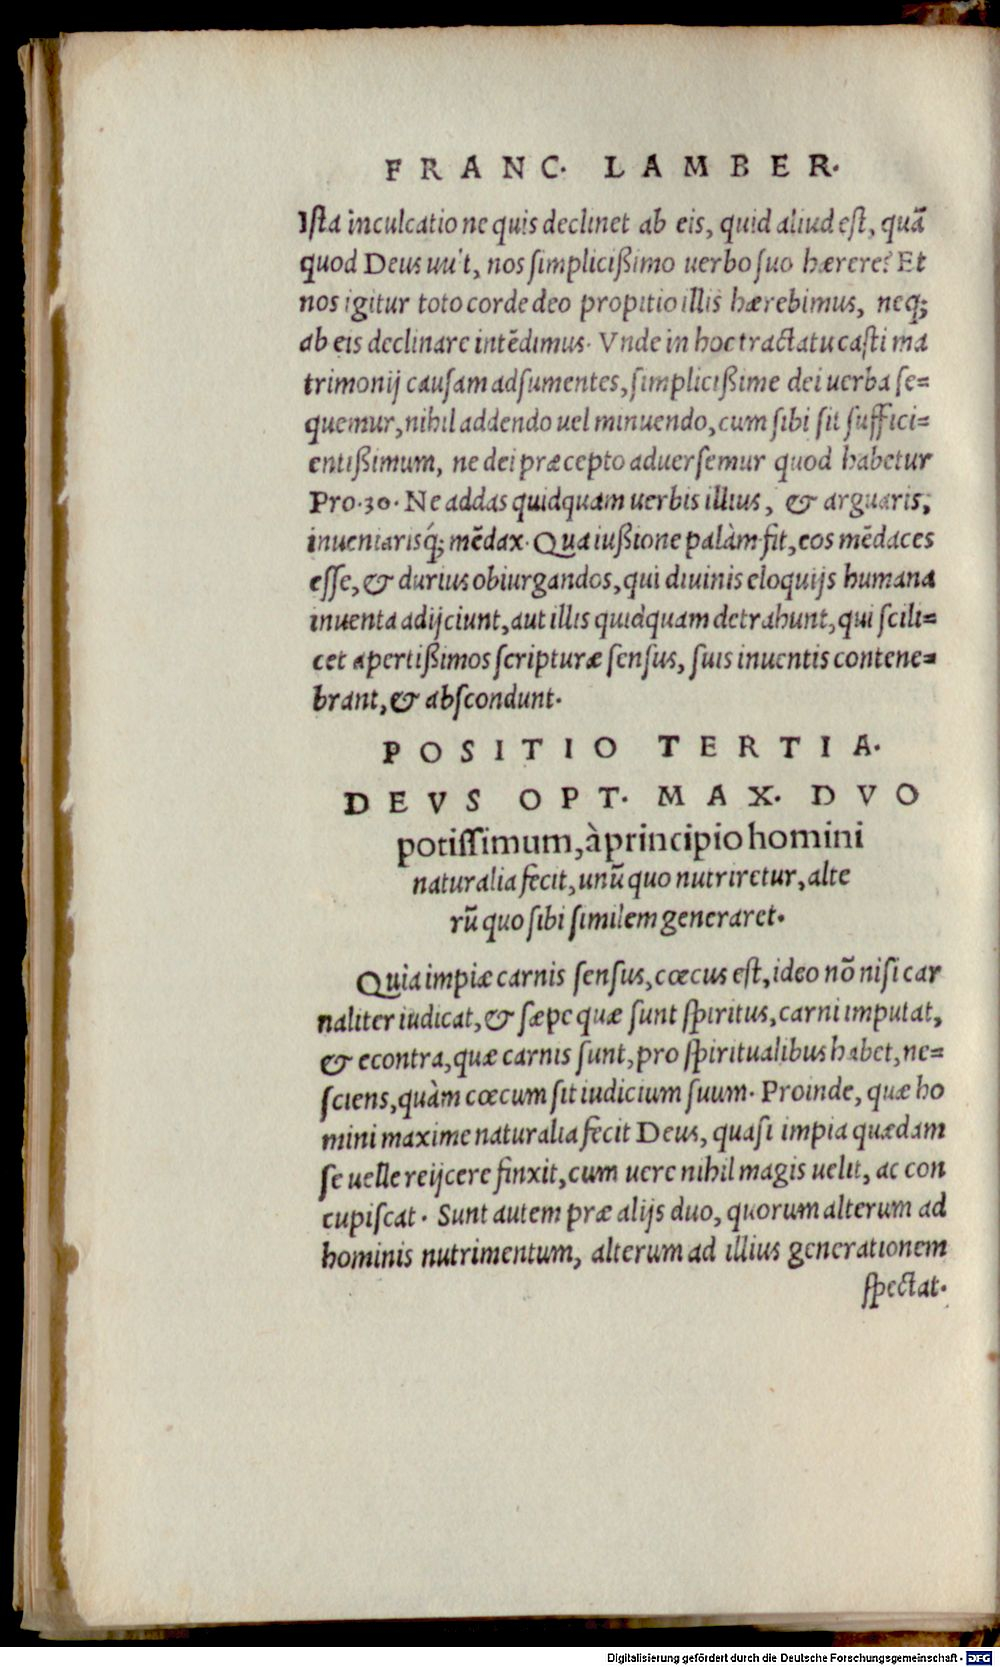 FRANC. LAMBER.
Ista inculcatio ne quis declinet ab eis, quid aliud est, quã
quod Deus uu't, nos simplicißimo uerbo suo hærere? Et
nos igitur toto corde deo propitio illis hærebimus, neq;
ab eis declinare intẽdimus. Vnde in hoc tractatu casti ma
trimonij causam adsumentes, simplicißime dei uerba se=
quemur, nihil addendo uel minuendo, cum sibi sit suffici=
entißimum, ne dei præcepto aduersemur quod habetur
Pro. 30. Ne addas quidquam uerbis illius, & arguaris,
inueniarisq́; mẽdax. Qua iußione palàm fit, eos mẽdaces
esse, & durius obiurgandos, qui diuinis eloquijs humana
inuenta adijciunt, aut illis quidquam detrahunt, qui scili=
cet apertißimos scripturæ sensus, suis inuentis contene=
brant, & abscondunt.
POSITIO TERTIA.
DEVS OPT. MAX. DVO
potissimum, à principio homini
naturalia fecit, unũ quo nutriretur, alte
rũ quo sibi similem generaret.
Quia impiæ carnis sensus, cœcus est, ideo nõ nisi car
naliter iudicat, & sæpe quæ sunt spiritus, carni imputat,
& econtra, quæ carnis sunt, pro spiritualibus habet, ne=
sciens, quàm cœcum sit iudicium suum. Proinde, quæ ho
mini maxime naturalia fecit Deus, quasi impia quædam
se uelle reijcere finxit, cum uere nihil magis uelit, ac con
cupiscat. Sunt autem præ alijs duo, quorum alterum ad
hominis nutrimentum, alterum ad illius generationem
spectat.
Digitalisierung gefördert durch die Deutsche Forschungsgemeinschaft - DFG